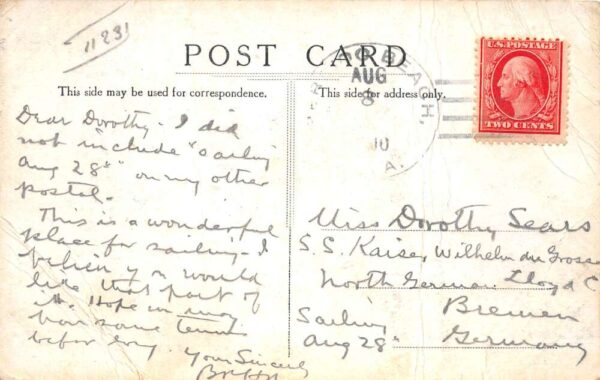 11231
POST CARD
This side may be used for correspondence.
This side for address only.
BEACH,
AUG
8
10
A.
U.S. POSTAGE
TWO CENTS
Dear Dorothy - I did
not include "sailing
Aug 28th" on my other
postal.
This is a wonderful
place for sailing - I
believ you would
like that part of
it. Hope in
some tennis
before long.
Yours Sincerely
Miss Dorothy Sears
S.S. Kaiser Wilhelm du Grosse
North German Lloyd C
Bremen
Germany
Sailing
Aug 28th